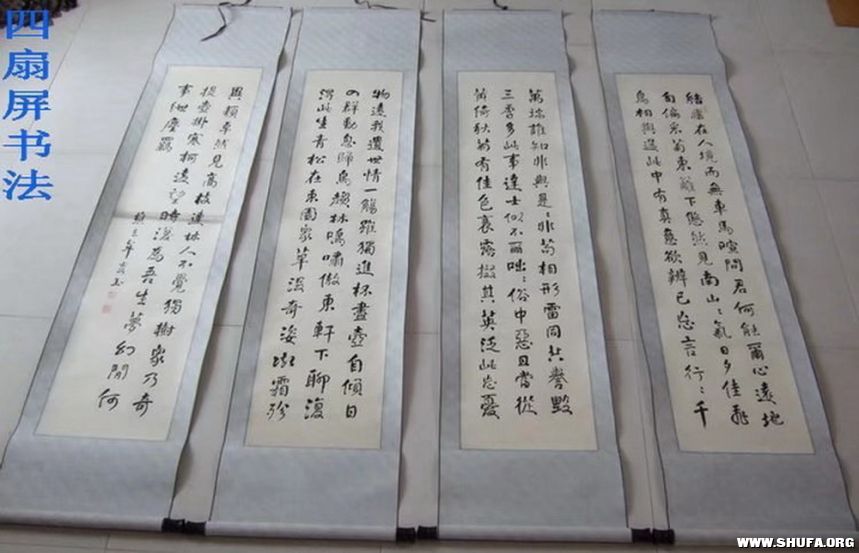 四扇屏书法
結廬在人境而無車馬喧問君何能爾心遠地
自偏采菊東籬下悠然見南山〻氣日夕佳飛
鳥相與還此中有真意欲辨已忘言行〻千
萬端誰知非與是〻非苟相形雷同共譽毀
三季多此事達士似不爾咄〻俗中惡且當從
黃綺秋菊有佳色裛露掇其英泛此忘憂
物遠我遺世情一觴雖獨進杯盡壺自傾日
入群動息歸鳥趨林鳴嘯傲東軒下聊復
得此生青松在東園眾草沒奇姿凝霜殄
異類卓然見高枝連林人不覺獨樹眾乃奇
提壺掛寒柯遠望時復為吾生夢幻間何
事紲塵羈
WWW.SHUFA.ORG